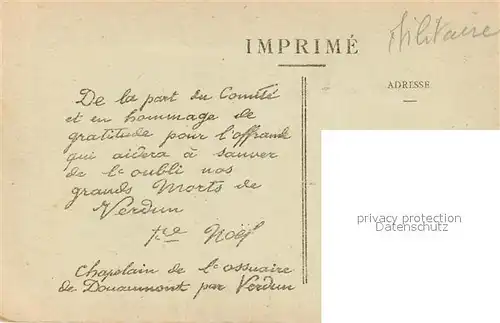 Militaire
IMPRIMÉ
ADRESSE
De la part du Comité
et en hommage de
gratitude pour l'offrande
qui aidera à sauver
de l'oubli nos
grands Morts de
Verdun
Noël
Chapelain de l'ossuaire
de Douaumont par Verdun
privacy protection
Privatsphärenschutz